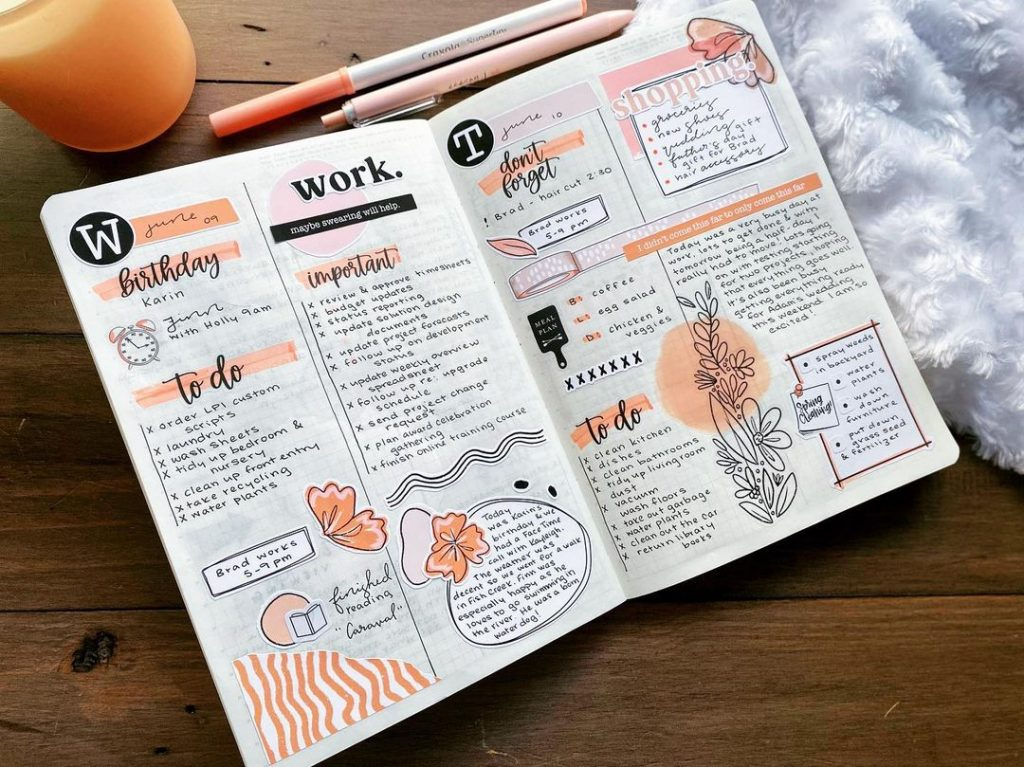 Crayola Supertips
W
june 09
birthday
Karin
with Holly 9am
to do
x order LPI custom
scripts
x laundry
x wash sheets
x tidy up bedroom &
nursery
x clean up front entry
x take recycling
x water plants
Brad works
5-9 pm
finished
reading
"Caraval"
work.
maybe swearing will help.
important
x review & approve timesheets
x budget updates
x status reporting
x update solution design
documents
x update project forecasts
x follow up on development
status
x update weekly overview
spreadsheet
x follow up re: upgrade
schedule
x send project change
request
x plan award celebration
gathering
x finish online training course
Today
was Karin's
birthday & we
had a Face Time
call with Kayleigh.
The weather was
decent so we went for a walk
in Fish Creek. Finn was
especially happy as he
loves to go swimming in
the river. He was a born
water dog!
T
june 10
don't
forget
! Brad - hair cut 2:30
Brad works
5-9 pm
shopping.
• groceries
• new shoes
• wedding gift
• father's day
gift for Brad
• hair accessory
I didn't come this far to only come this far
Today was a very busy day at
work, lots to get done & with
tomorrow being a half-day I
really had to move! Lots going
on with testing starting
for two projects, hoping
that everything goes well.
It's also been busy
getting everything ready
for Adam's wedding
this weekend. I am so
excited!
MEAL
PLAN
B: coffee
L: egg salad
D: chicken &
veggies
xxxxxxx
to do
x clean kitchen
x dishes
x clean bathrooms
x tidy up living room
x dust
x vacuum
x wash floors
x take out garbage
x water plants
x clean out the car
x return library
books
Spring
Cleaning!
• spray weeds
in backyard
• water
plants
• wash
down
furniture
• put down
grass seed
& fertilizer